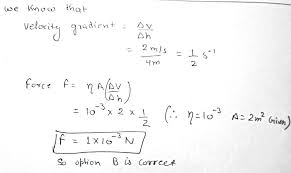 we know that
velocity gradient = ΔV/Δh
= 2 m/s / 4m = 1/2 s⁻¹
Force F = η A (ΔV/Δh)
= 10⁻³ × 2 × 1/2 (∵ η = 10⁻³ A = 2m² Given)
F = 1×10⁻³ N
So option B is correct